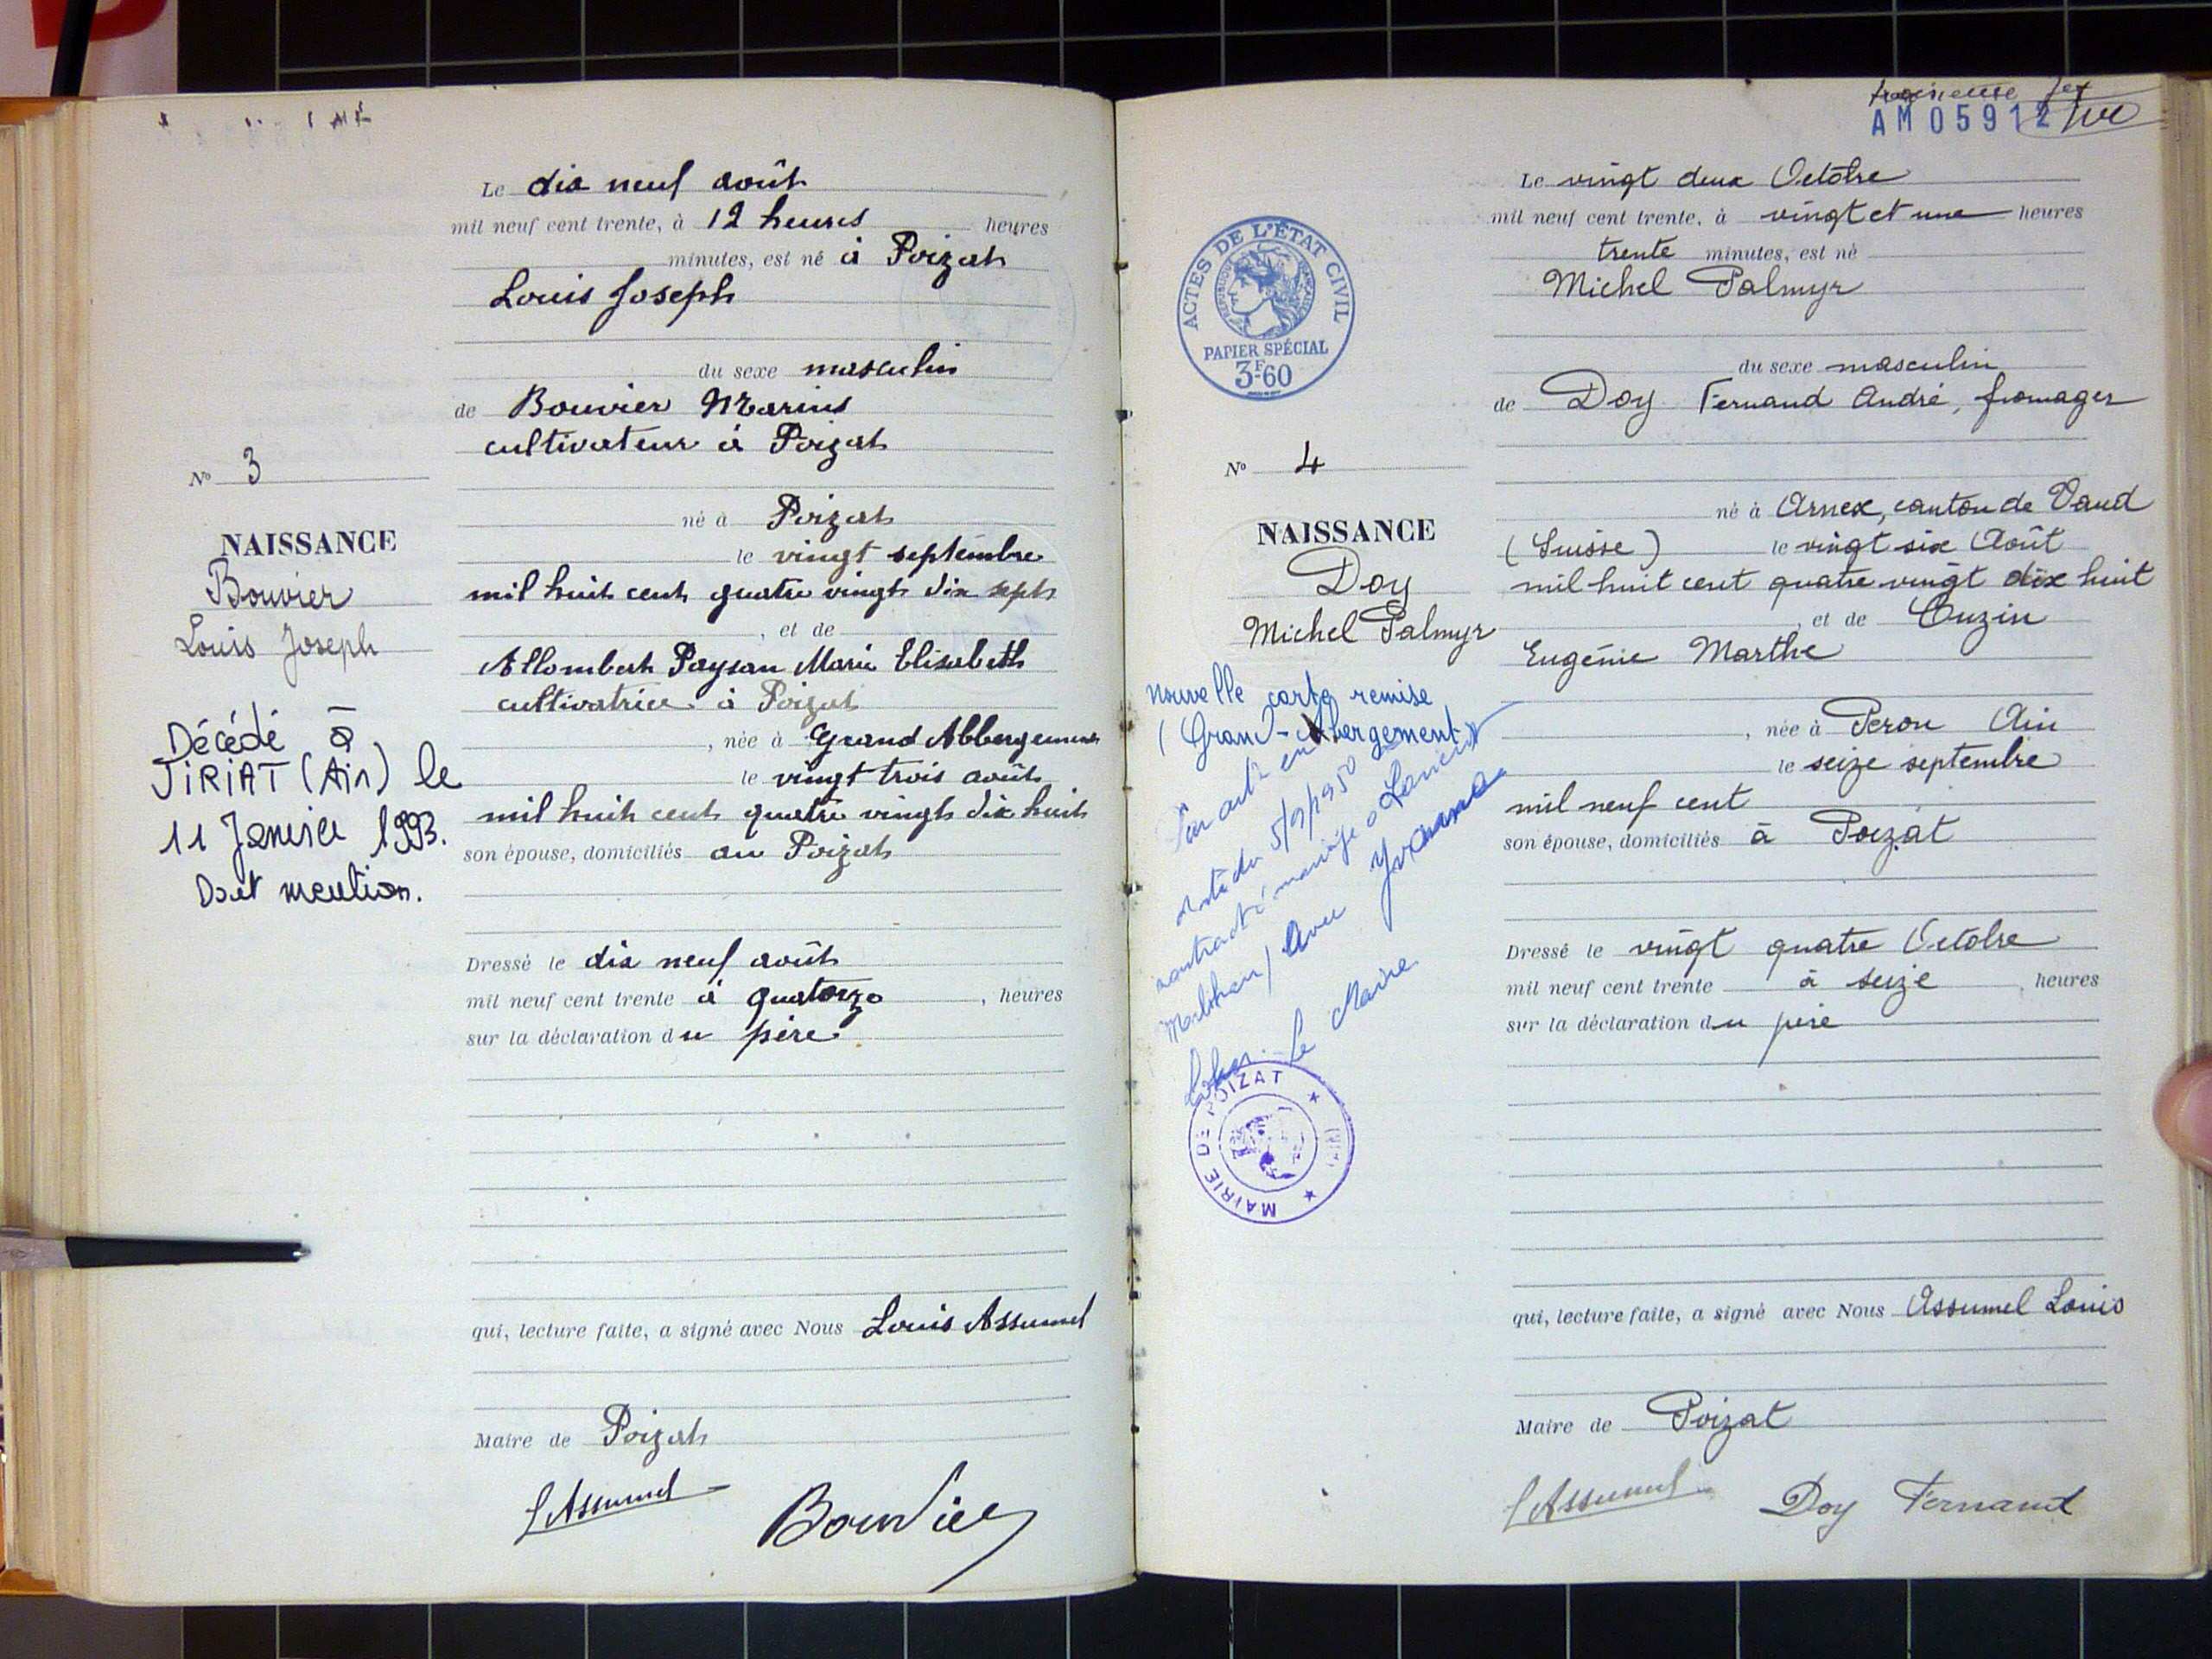 Le dix neuf août
mil neuf cent trente, à 12 heures heures
minutes, est né à Poizat
Louis Joseph
du sexe masculin
de Bouvier Marius
cultivateur à Poizat
né à Poizat
le vingt septembre
mil huit cent quatre vingt dix sept
, et de
Allombert Paysan Marie Elisabeth
cultivatrice à Poizat
, née à Grand Abbergement
le vingt trois août
mil huit cent quatre vingt dix huit
son épouse, domiciliés au Poizat
Dressé le dix neuf août
mil neuf cent trente à quatorze , heures
sur la déclaration du père
qui, lecture faite, a signé avec Nous Louis Assumel
Maire de Poizat
LAssumel Bouvier
No 3
NAISSANCE
Bouvier
Louis Joseph
Décédé à
VIRIAT (Ain) le
11 Janvier 1993.
Dont mention.
AM05912
ACTES DE L'ÉTAT CIVIL
PAPIER SPÉCIAL
3F60
No 4
NAISSANCE
Doy
Michel Palmyr
nouvelle carte remise
(Grand-Abergement)
Par acte en
date du 5/9/1950
contracté mariage à
Morbihan) avec Yvonne
Le Maire
MAIRIE DE POIZAT
Le vingt deux Octobre
mil neuf cent trente, à vingt et une heures
trente minutes, est né
Michel Palmyr
du sexe masculin
de Doy Fernand André, fromager
né à Arnex, canton de Vaud
(Suisse) le vingt six Août
mil huit cent quatre vingt dix huit
, et de Cuzin
Eugénie Marthe
, née à Peron Ain
le seize septembre
mil neuf cent
son épouse, domiciliés à Poizat
Dressé le vingt quatre Octobre
mil neuf cent trente à seize , heures
sur la déclaration du père
qui, lecture faite, a signé avec Nous Assumel Louis
Maire de Poizat
LAssumel Doy Fernand